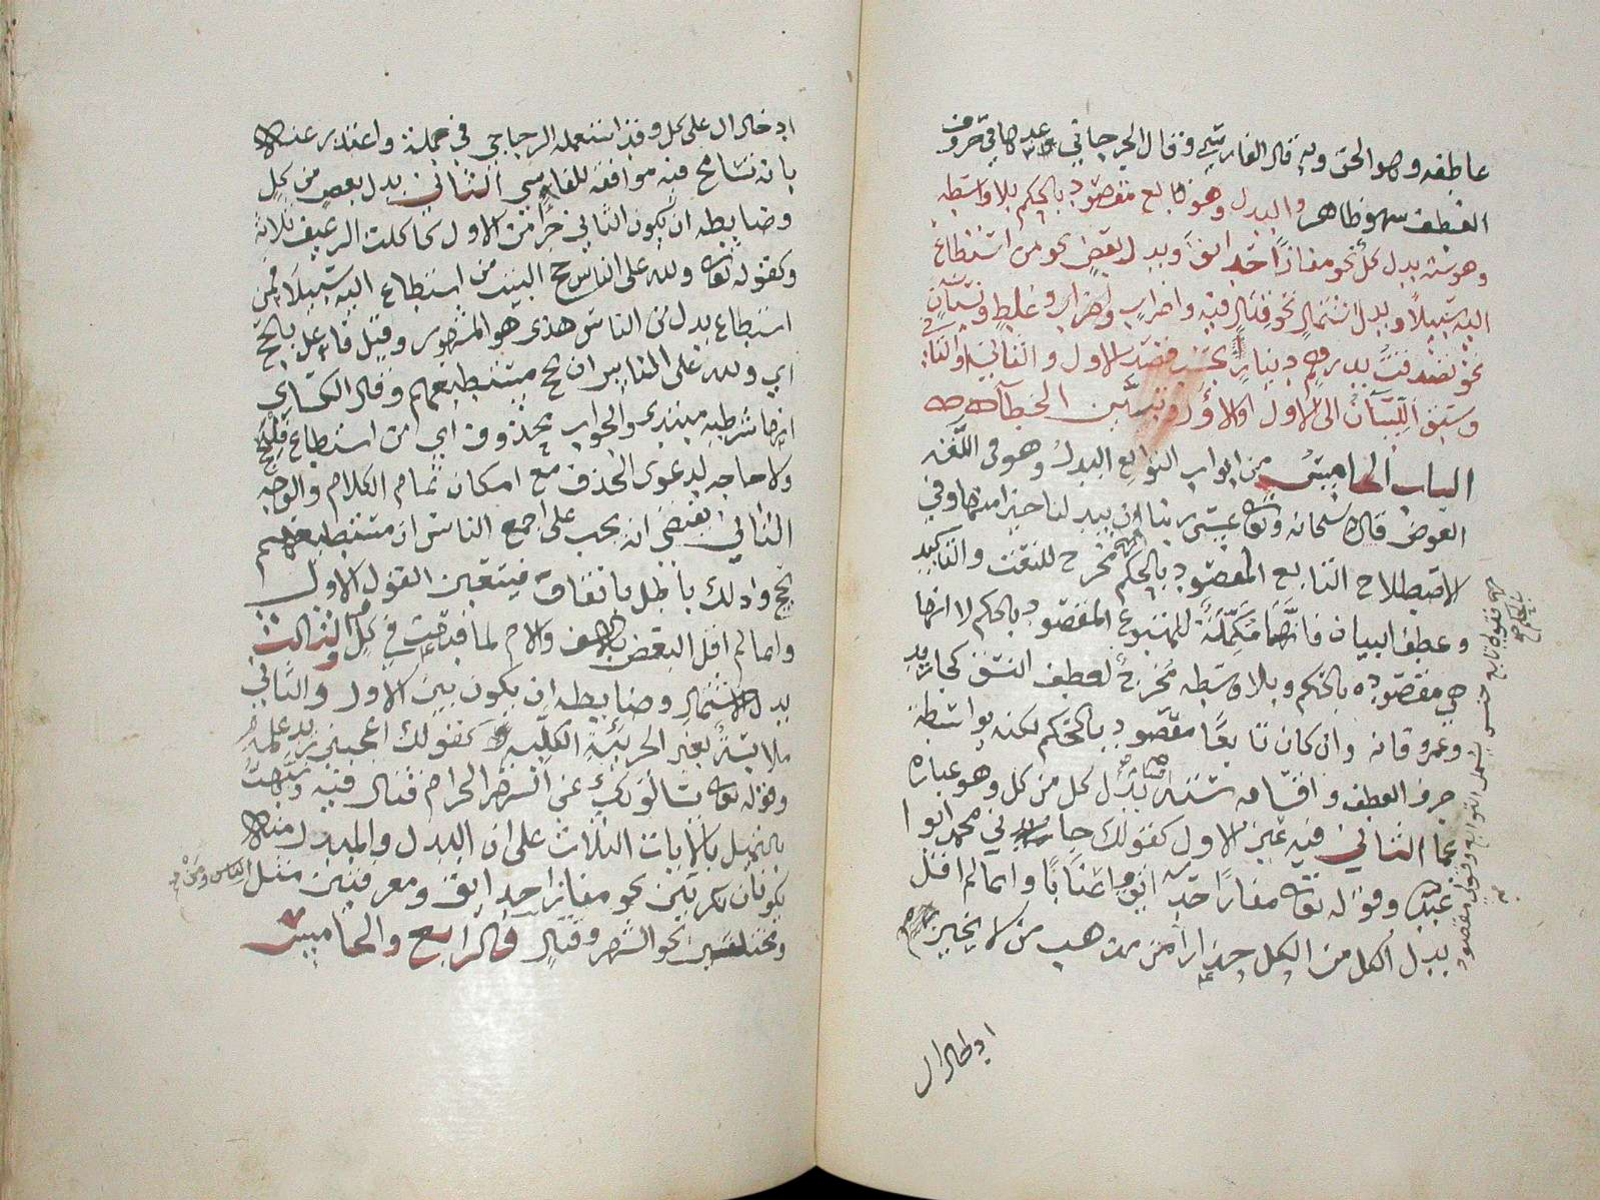 عاطفه وهو الحق وبه قال الفارسي وقال الجرجاني عدها في حروف
العطف سهو ظاهر والبدل وهو تابع مقصود بالحكم بلا واسطه
وهو ستة بدل كل نحو مفازا حدائق وبدل بعض نحو من استطاع
اليه سبيلا وبدل اشتمال نحو قتال فيه واضراب وغلط ونسيان
نحو تصدقت بدرهم دينار بحسب قصد الاول والثاني او الثاني
وسبق اللسان الى الاول او الاول وتبين الخطا
الباب الخامس من ابواب التوابع البدل وهو في اللغه
العوض قال الله سبحانه وتعالى عسى ربنا ان يبدلنا خيرا منها وفي
الاصطلاح التابع المقصود بالحكم مخرج للنعت والتاكيد
وعطف البيان فانها مكملة للمتبوع المقصود بالحكم لا انها
هي مقصوده بالحكم وبلا واسطه مخرج لعطف النسق كجا زيد
وعمرو فانه وان كان تابعا مقصودا بالحكم لكنه بواسطة
حرف العطف واقسامه ستة بدل كل من كل وهو عباره
عما الثاني فيه عين الاول كقولك جاني محمد ابو
عبدالله وقوله تعالى مفازا حدائق واعنابا وانما لم اقل
بدل الكل من الكل حذرا من مذهب من لا يجيز
ادخال ال
ادخال ال على كل وقد استعمله الزجاجي في جمله واعتذر عنه
بانه تسامح فيه موافقة للناس الثاني بدل بعض من كل
وضابطه ان يكون الثاني جزأ من الاول نحو اكلت الرغيف ثلاثه
وكقوله تعالى ولله على الناس حج البيت من استطاع اليه سبيلا فمن
استطاع بدل من الناس هذا هو المشهور وقيل فاعل بالحج
اي ولله على الناس ان يحج مستطيعهم وقال الكساي
انها شرطيه مبتدى والجواب محذوف اي من استطاع فليحج
ولا حاجه لدعوى الحذف مع امكان تمام الكلام والوجه
الثاني يقتضي انه يجب على جميع الناس ان مستطيعهم
يحج وذلك باطل باتفاق فيتعين القول الاول
وانما لم اقل البعض بالالف والام لما قدمت في كل والثالث
بدل الاشتمال وضابطه ان يكون بين الاول والثاني
ملابسة بغير الجزئية الكليه كقولك اعجبني زيد علمه
وقوله تعالى يسالونك عن الشهر الحرام قتال فيه ونبهت
بالتمثيل بالايات الثلاث على ان البدل والمبدل منه
يكونان نكرتين نحو مفازا حدائق ومعرفتين مثل الناس ومن
ومختلفين نحو الشهر وقتال والرابع والخامس